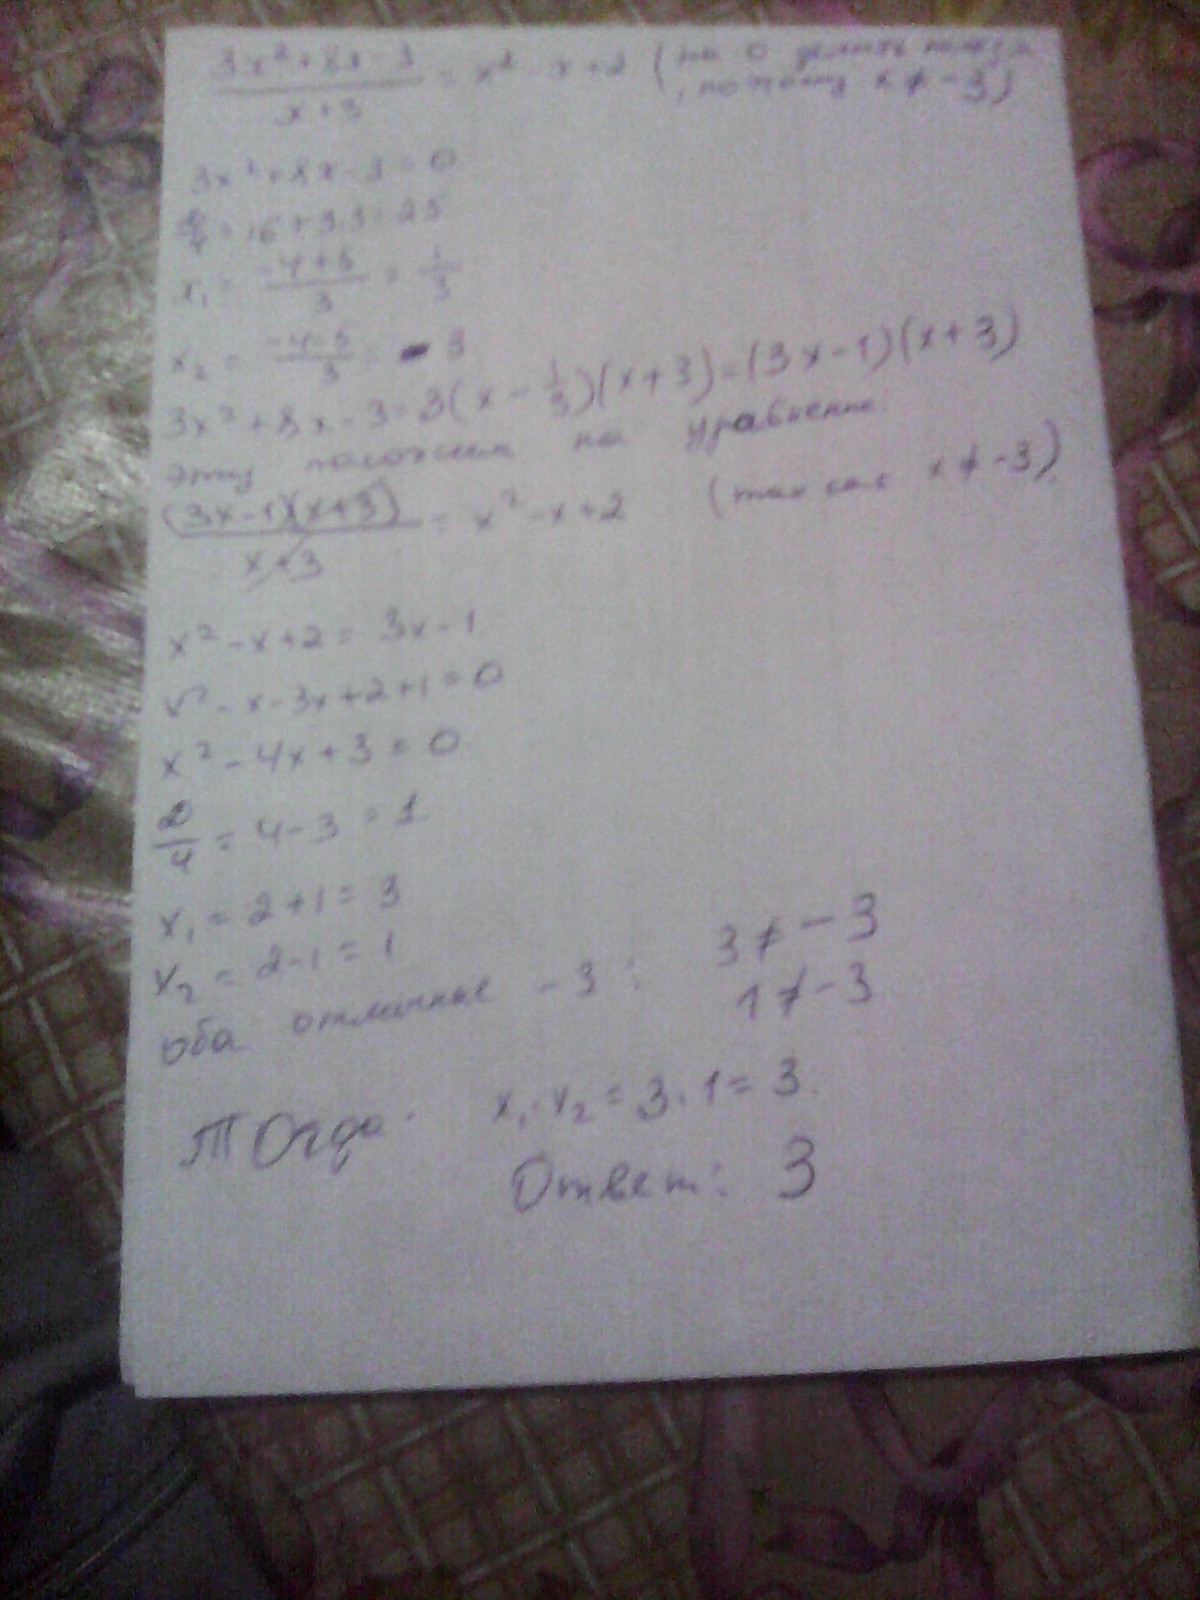 3x² + 8x - 3 / x + 3 = x² - x + 2 (на 0 делить нельзя
, поэтому x ≠ -3)
3x² + 8x - 3 = 0
D/4 = 16 + 3·3 = 25
x₁ = -4+5 / 3 = 1/3
x₂ = -4-5 / 3 = -3
3x² + 8x - 3 = 3(x - 1/3)(x+3) = (3x-1)(x+3)
на уравнение:
(3x-1)(x+3) / x+3 = x² - x + 2 (так как x ≠ -3)
x² - x + 2 = 3x - 1
x² - x - 3x + 2 + 1 = 0
x² - 4x + 3 = 0
D/4 = 4 - 3 = 1
x₁ = 2 + 1 = 3
x₂ = 2 - 1 = 1
оба отличные -3: 3 ≠ -3
1 ≠ -3
Тогда x₁·x₂ = 3·1 = 3
Ответ: 3